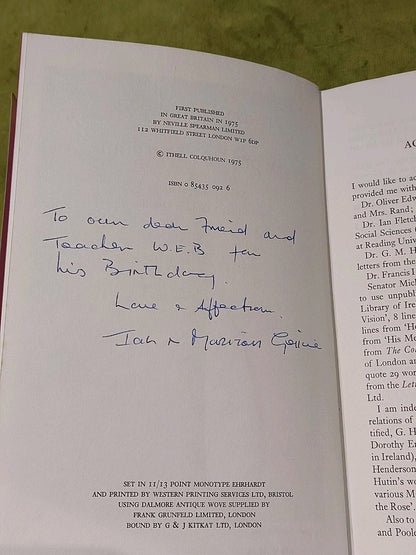 FIRST PUBLISHED
IN GREAT BRITAIN IN 1975
BY NEVILLE SPEARMAN LIMITED
112 WHITFIELD STREET LONDON W1P 6DP
© ITHELL COLQUHOUN 1975
ISBN 0 85435 092 6
To our dear Friend and
Teacher W.E.B for
his Birthday.
Love & Affection.
Ian & Marian
SET IN 11/13 POINT MONOTYPE EHRHARDT
AND PRINTED BY WESTERN PRINTING SERVICES LTD, BRISTOL
USING DALMORE ANTIQUE WOVE SUPPLIED BY
FRANK GRUNFELD LIMITED, LONDON
BOUND BY G & J KITKAT LTD, LONDON
I would like to
provided me with
Dr. Oliver
and Mrs. Rand;
Dr. Ian
Social Sciences
at Reading
Dr. G. M. H
letters from the
Dr. Francis
Senator
to use
Library of
Vision', 8
lines from
from 'His
from The
of London
quote 29
from the
Ltd.
I am
relations of
G. H.
Dorothy
in Ireland),
Henderson
Hutin's
various M
the Rose'.
Also to
and